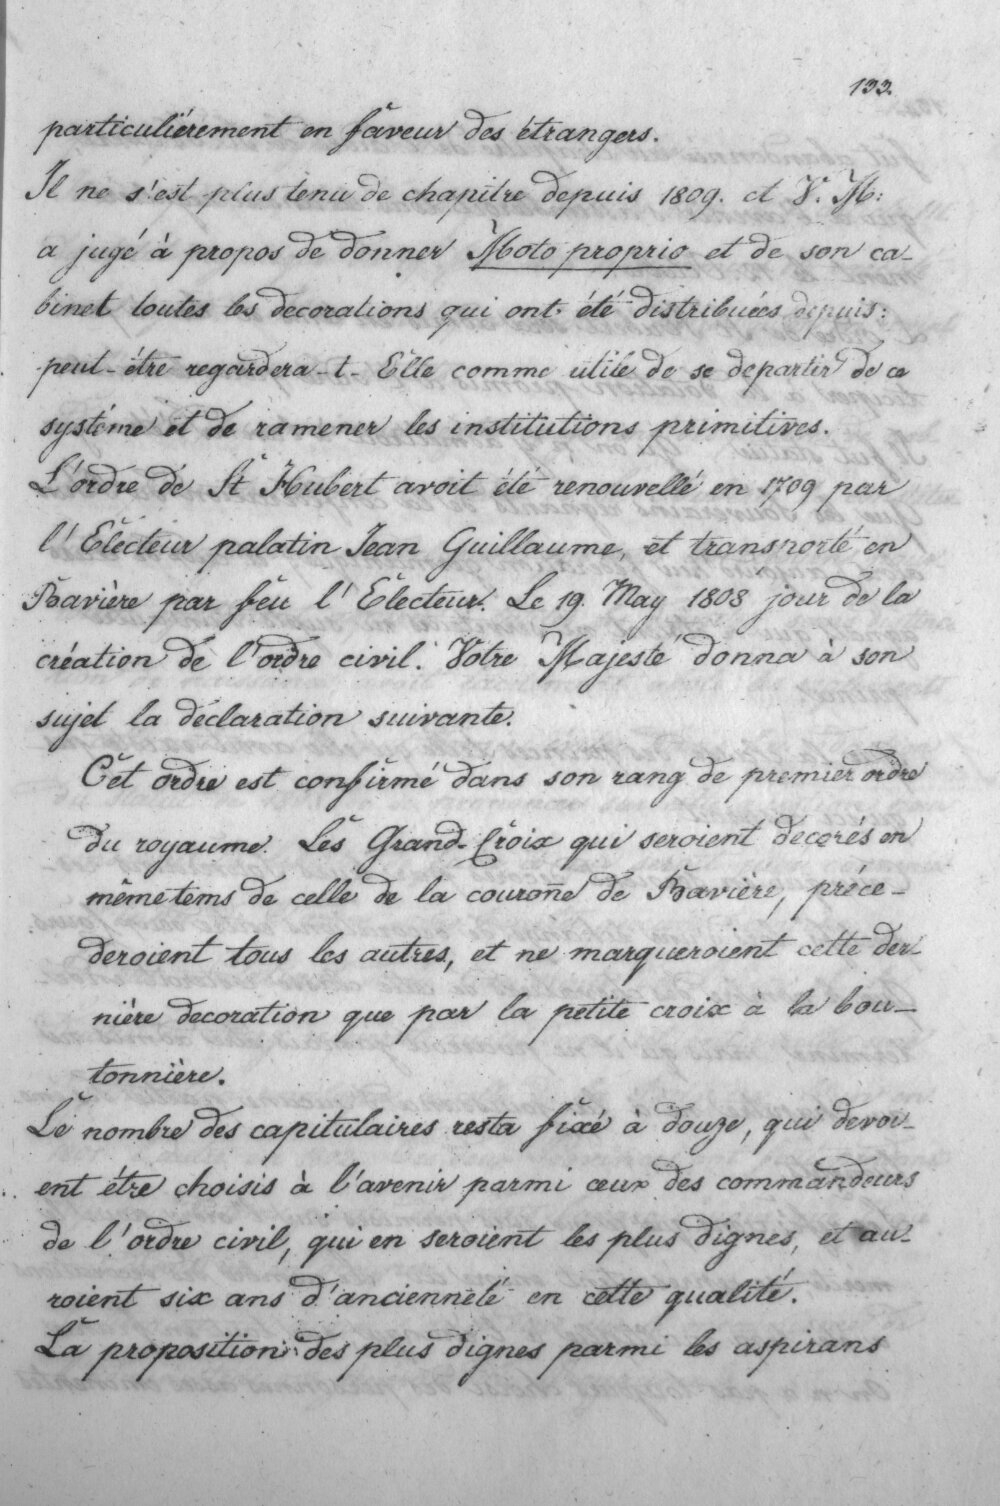 133.
particulièrement en faveur des étrangers.
Il ne s'est plus tenu de chapitre depuis 1809. et V. M:
a jugé à propos de donner Moto proprio et de son ca-
binet toutes les decorations qui ont été distribuées depuis:
peut-être regardera-t-Elle comme utile de se departir de ce
systéme et de ramener les institutions primitives.
L'ordre de St Hubert avoit été renouvellé en 1709 par
l'Electeur palatin Jean Guillaume, et transporté en
Bavière par feu l'Electeur. Le 19. May 1808 jour de la
création de l'ordre civil. Votre Majesté donna à son
sujet la declaration suivante.
Cet ordre est confirmé dans son rang de premier ordre
du royaume. Les Grand-Croix qui seroient decorés en
même tems de celle de la couron̄e de Bavière, préce-
deroient tous les autres, et ne marqueroient cette der-
nière decoration que par la petite croix à la bou-
tonnière.
Le nombre des capitulaires resta fixé à douze, qui devoi-
ent être choisis à l'avenir parmi ceux des commandeurs
de l'ordre civil, qui en seroient les plus dignes, et au-
roient six ans d'ancienneté en cette qualité.
La proposition des plus dignes parmi les aspirans